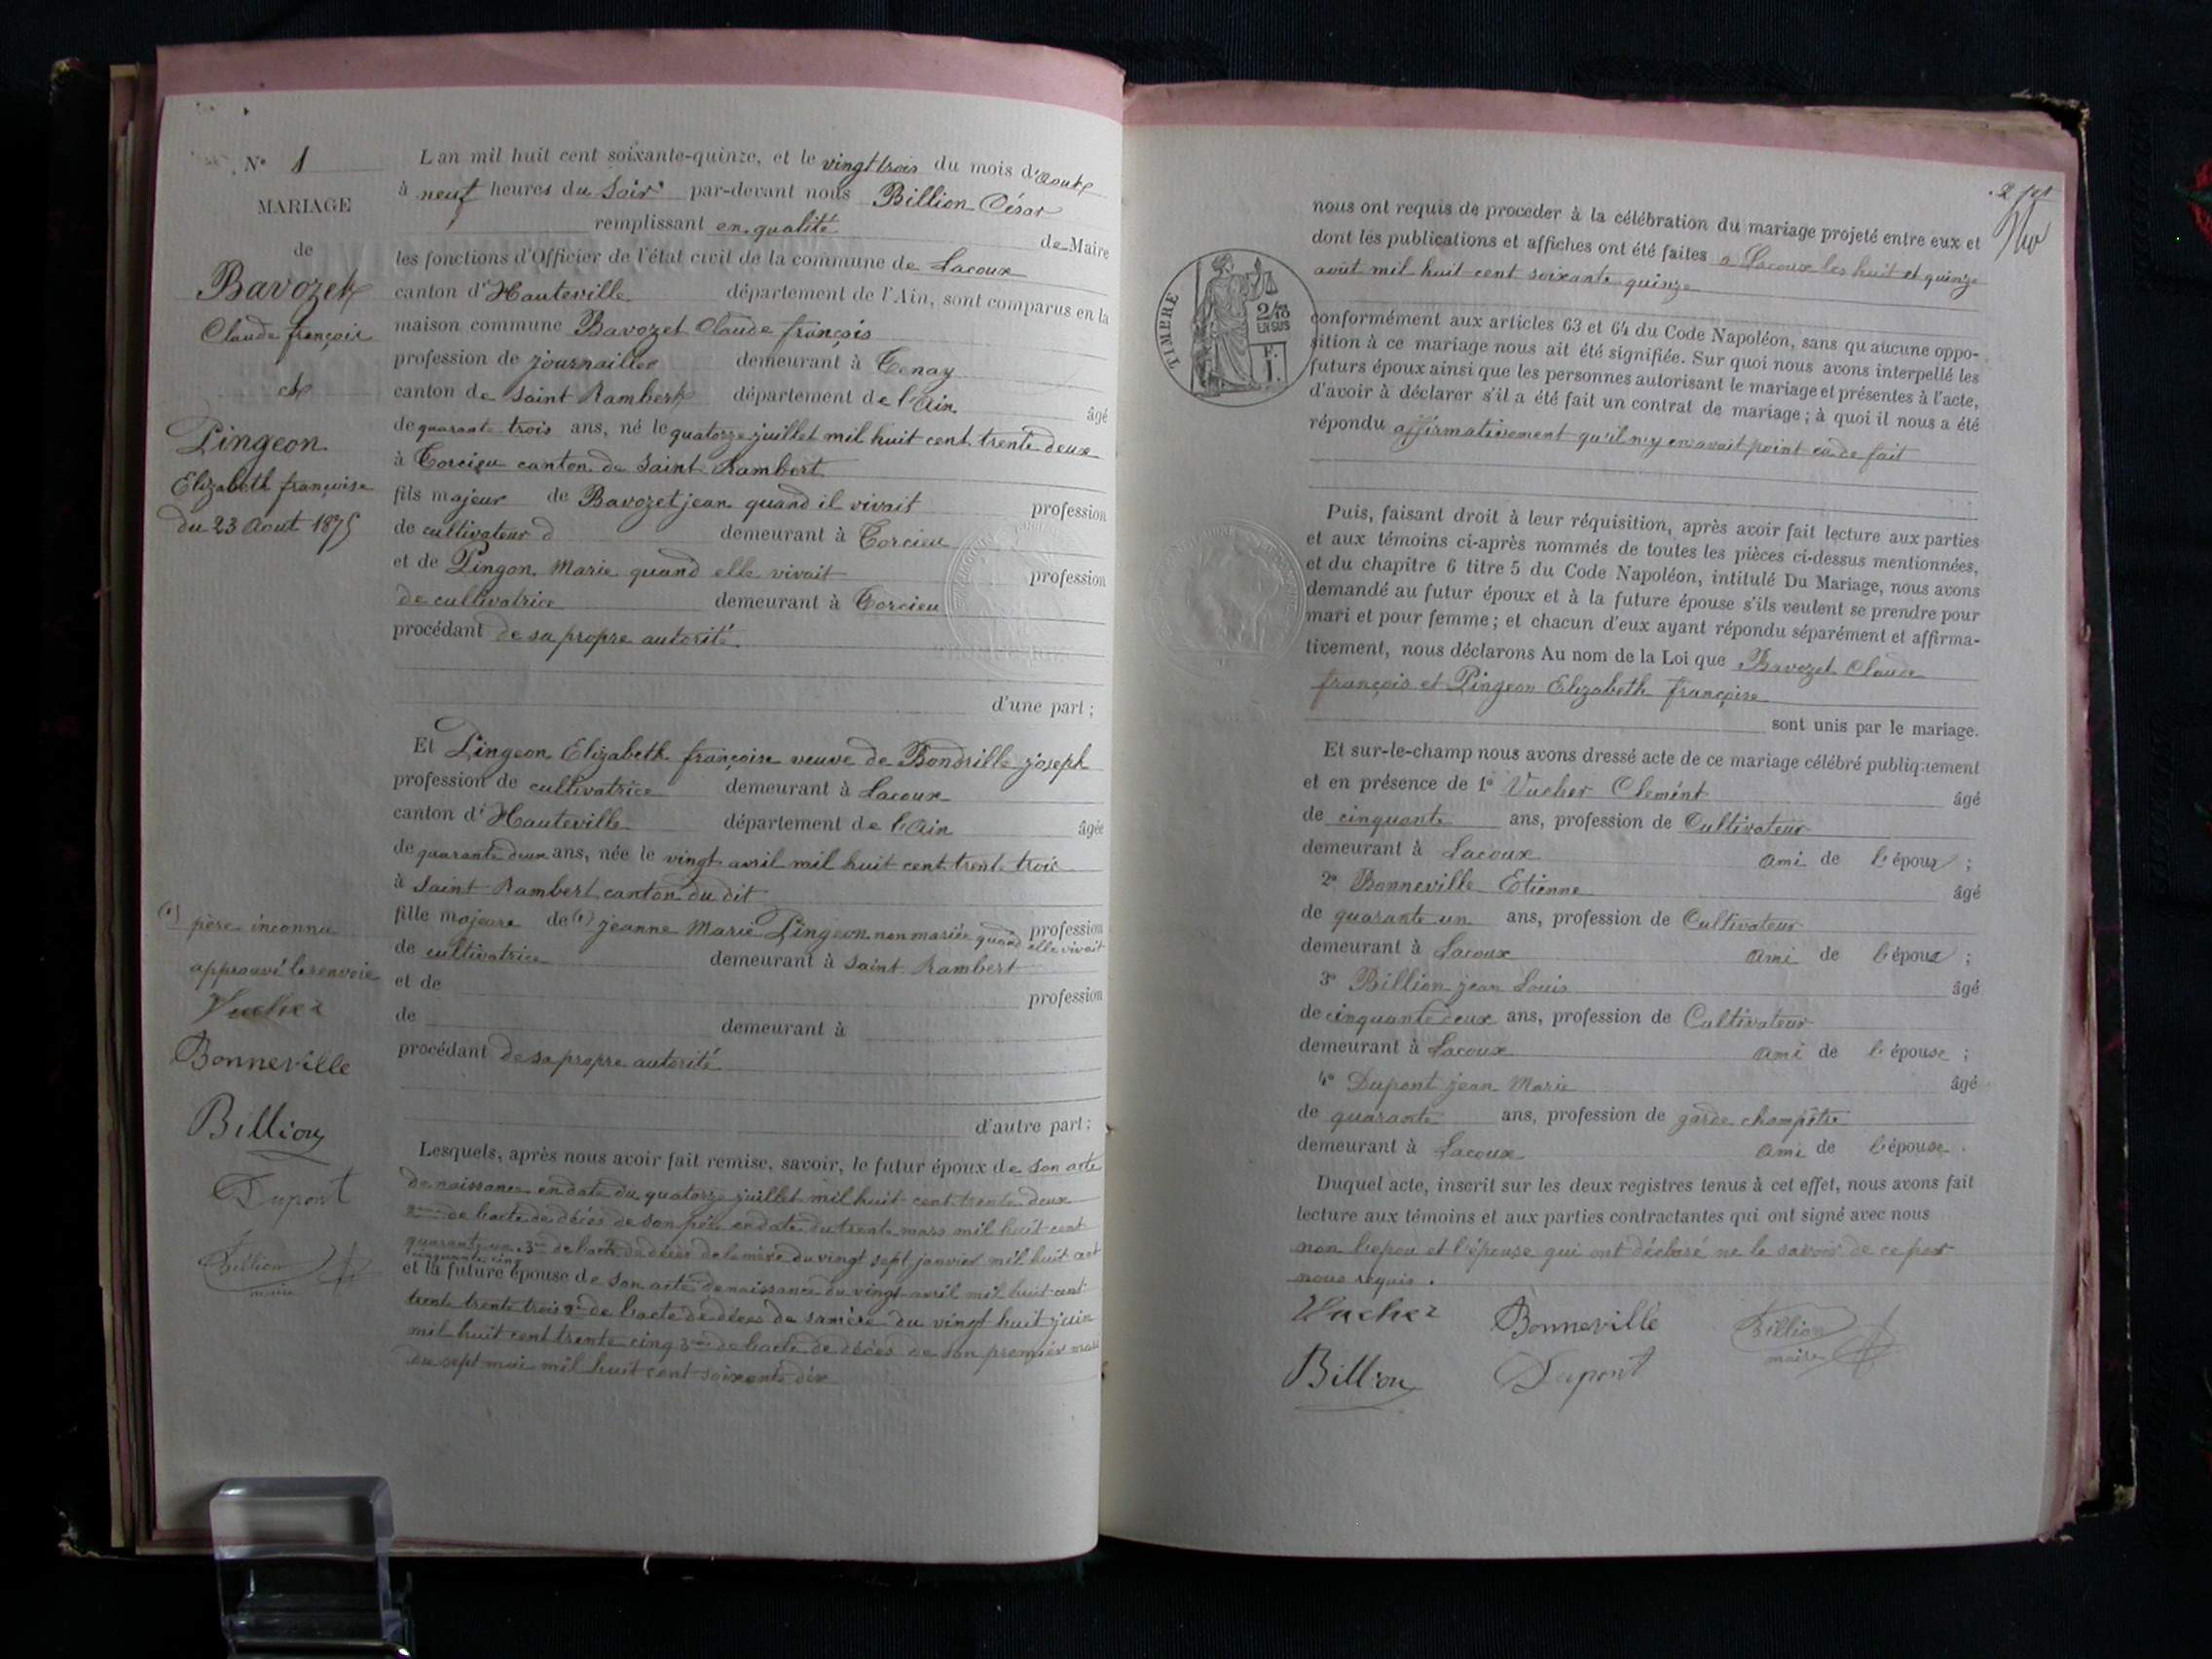 N° 1
MARIAGE
de
Bavozet
Claude françois
et
Pingeon
Elizabeth françoise
du 23 Aout 1875
(1) père inconnu
approuvé le renvoie
Vucher
Bonneville
Billion
Dupont
Billion
maire
L'an mil huit cent soixante-quinze, et le vingt trois du mois d'Aout
à neuf heures du Soir par-devant nous Billion César
remplissant en qualité de Maire
les fonctions d'Officier de l'état civil de la commune de Lacoux
canton d'Hauteville département de l'Ain, sont comparus en la
maison commune Bavozet Claude françois
profession de journaillier demeurant à Tenay
canton de Saint Rambert département de l'Ain âgé
de quarante trois ans, né le quatorze juillet mil huit cent trente deux
à Torcieu canton de Saint Rambert
fils majeur de Bavozet jean quand il vivait profession
de cultivateur d demeurant à Torcieu
et de Pingon Marie quand elle vivait profession
de cultivatrice demeurant à Torcieu
procédant de sa propre autorité
d'une part ;
Et Pingeon Elizabeth françoise veuve de Bondrille joseph
profession de cultivatrice demeurant à Lacoux
canton d'Hauteville département de l'Ain âgée
de quarante deux ans, née le vingt avril mil huit cent trente trois
à Saint Rambert canton du dit
fille majeure de (1) jeanne Marie Pingeon non mariée quand elle vivait profession
de cultivatrice demeurant à Saint Rambert
et de profession
de demeurant à
procédant de sa propre autorité
d'autre part ;
Lesquels, après nous avoir fait remise, savoir, le futur époux de son acte
de naissance en date du quatorze juillet mil huit cent trente deux
2me de l'acte de décès de son père en date du trente mars mil huit cent
quarante un 3me de l'acte de décès de la mère du vingt sept janvier mil huit cent
cinquante cinq
et la future épouse de son acte de naissance du vingt avril mil huit cent
trente trente trois 2me de l'acte de décès de sa mère du vingt huit juin
mil huit cent trente cinq 3me de l'acte de décès de son premier mari
du sept mai mil huit cent soixante dix
nous ont requis de procéder à la célébration du mariage projeté entre eux et
dont les publications et affiches ont été faites a Lacoux les huit et quinze
août mil huit cent soixante quinze
TIMBRE
2/10
EN SUS
conformément aux articles 63 et 64 du Code Napoléon, sans qu'aucune oppo-
sition à ce mariage nous ait été signifiée. Sur quoi nous avons interpellé les
futurs époux ainsi que les personnes autorisant le mariage et présentes à l'acte,
d'avoir à déclarer s'il a été fait un contrat de mariage ; à quoi il nous a été
répondu affirmativement qu'il n'y en avait point eu de fait
Puis, faisant droit à leur réquisition, après avoir fait lecture aux parties
et aux témoins ci-après nommés de toutes les pièces ci-dessus mentionnées,
et du chapitre 6 titre 5 du Code Napoléon, intitulé Du Mariage, nous avons
demandé au futur époux et à la future épouse s'ils veulent se prendre pour
mari et pour femme ; et chacun d'eux ayant répondu séparément et affirma-
tivement, nous déclarons Au nom de la Loi que Bavozet Claude
françois et Pingeon Elizabeth françoise
sont unis par le mariage.
Et sur-le-champ nous avons dressé acte de ce mariage célébré publiquement
et en présence de 1° Vucher Clemént âgé
de cinquante ans, profession de Cultivateur
demeurant à Lacoux ami de l'époux ;
2° Bonneville Etienne âgé
de quarante un ans, profession de Cultivateur
demeurant à Lacoux ami de l'époux ;
3° Billion jean Louis âgé
de cinquante deux ans, profession de Cultivateur
demeurant à Lacoux ami de l'épouse ;
4° Dupont jean Marie âgé
de quarante ans, profession de garde champêtre
demeurant à Lacoux ami de l'épouse.
Duquel acte, inscrit sur les deux registres tenus à cet effet, nous avons fait
lecture aux témoins et aux parties contractantes qui ont signé avec nous
non l'epou et l'épouse qui ont déclaré ne le savoir de ce par
nous requis.
Vucher Bonneville Billion
maire
Billion Dupont